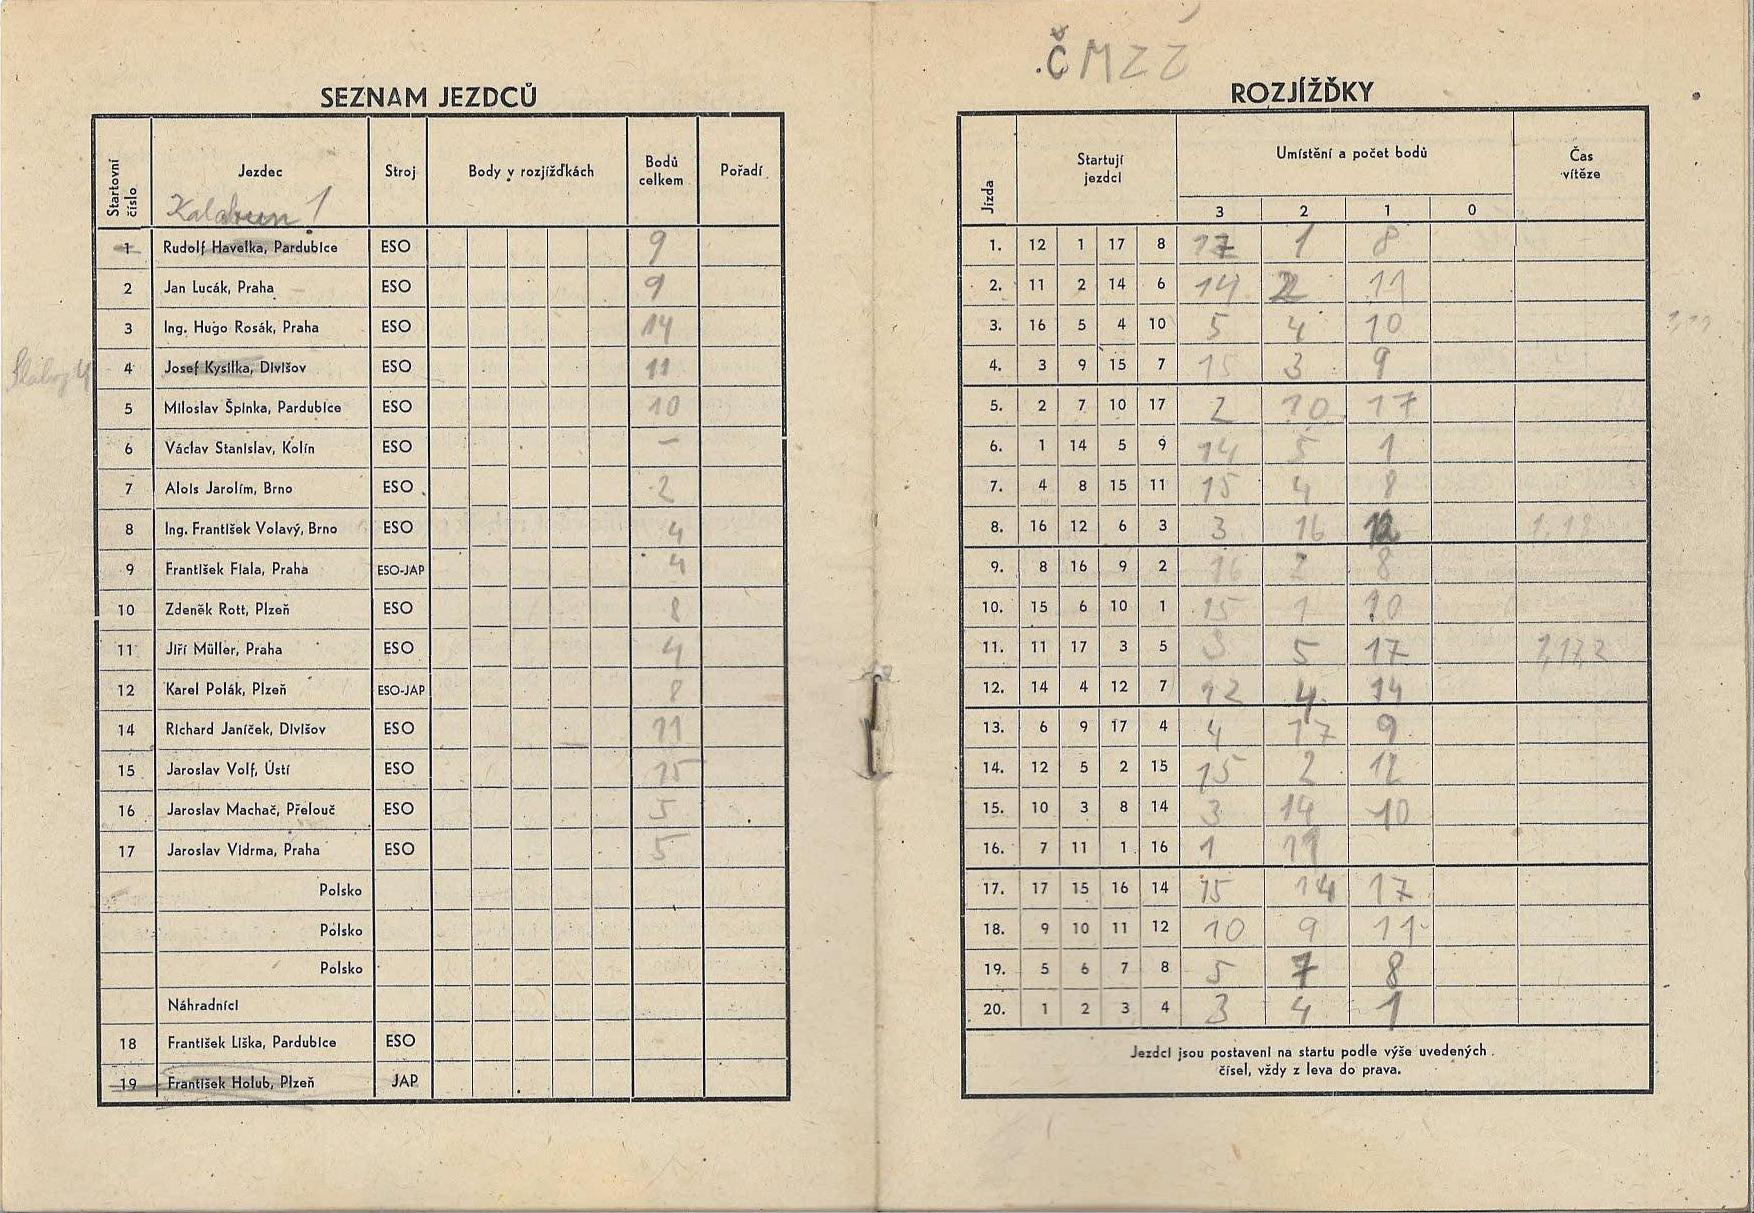 SEZNAM JEZDCŮ
Startovní číslo Jezdec Stroj Body v rozjížďkách Bodů celkem Pořadí
Kalabun 1
1 Rudolf Havelka, Pardubice ESO 9
2 Jan Lucák, Praha ESO 9
3 Ing. Hugo Rosák, Praha ESO 14
4 Josef Kysilka, Divišov ESO 11
5 Miloslav Špinka, Pardubice ESO 10
6 Václav Stanislav, Kolín ESO –
7 Alois Jarolím, Brno ESO 2
8 Ing. František Volavý, Brno ESO 4
9 František Fiala, Praha ESO-JAP 4
10 Zdeněk Rott, Plzeň ESO 8
11 Jiří Müller, Praha ESO 4
12 Karel Polák, Plzeň ESO-JAP 8
14 Richard Janíček, Divišov ESO 11
15 Jaroslav Volf, Ústí ESO 15
16 Jaroslav Machač, Přelouč ESO 5
17 Jaroslav Vidrma, Praha ESO 5
Polsko
Polsko
Polsko
Náhradníci
18 František Liška, Pardubice ESO
19 František Holub, Plzeň JAP
ČMZZ
ROZJÍŽĎKY
Jízda Startují jezdci Umístění a počet bodů Čas vítěze
3 2 1 0
1. 12 1 17 8 17 1 8
2. 11 2 14 6 14 2 11
3. 16 5 4 10 5 4 10
4. 3 9 15 7 15 3 9
5. 2 7 10 17 2 10 17
6. 1 14 5 9 14 5 1
7. 4 8 15 11 15 4 8
8. 16 12 6 3 3 16 12
9. 8 16 9 2 16 2 8
10. 15 6 10 1 15 1 10
11. 11 17 3 5 3 5 17
12. 14 4 12 7 12 4 14
13. 6 9 17 4 4 17 9
14. 12 5 2 15 15 2 12
15. 10 3 8 14 3 14 10
16. 7 11 1 16 1 11
17. 17 15 16 14 15 14 17
18. 9 10 11 12 10 9 11
19. 5 6 7 8 5 7 8
20. 1 2 3 4 3 4 1
Jezdci jsou postaveni na startu podle výše uvedených
čísel, vždy z leva do prava.